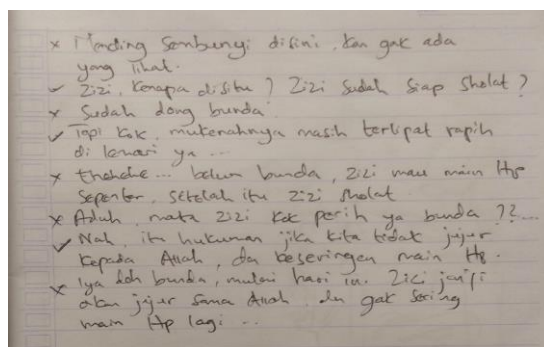 x Mending Sembunyi disini, kan gak ada
yang lihat.
✓ Zizi, kenapa disitu? Zizi sudah siap sholat?
x Sudah dong bunda
✓ Tapi kok, mukenahnya masih terlipat rapih
di lemari ya ...
x Ehehehe... belum bunda, zizi mau main Hp
sepenter, setelah itu zizi sholat
x Aduh, mata zizi kok perih ya bunda ??....
✓ Nah, itu hukuman jika kita tidak jujur
kepada Allah, dan keseringan main Hp.
x Iya deh bunda, mulai hari ini. Zizi janji
akan jujur sama Allah, dan gak sering
main Hp lagi ...